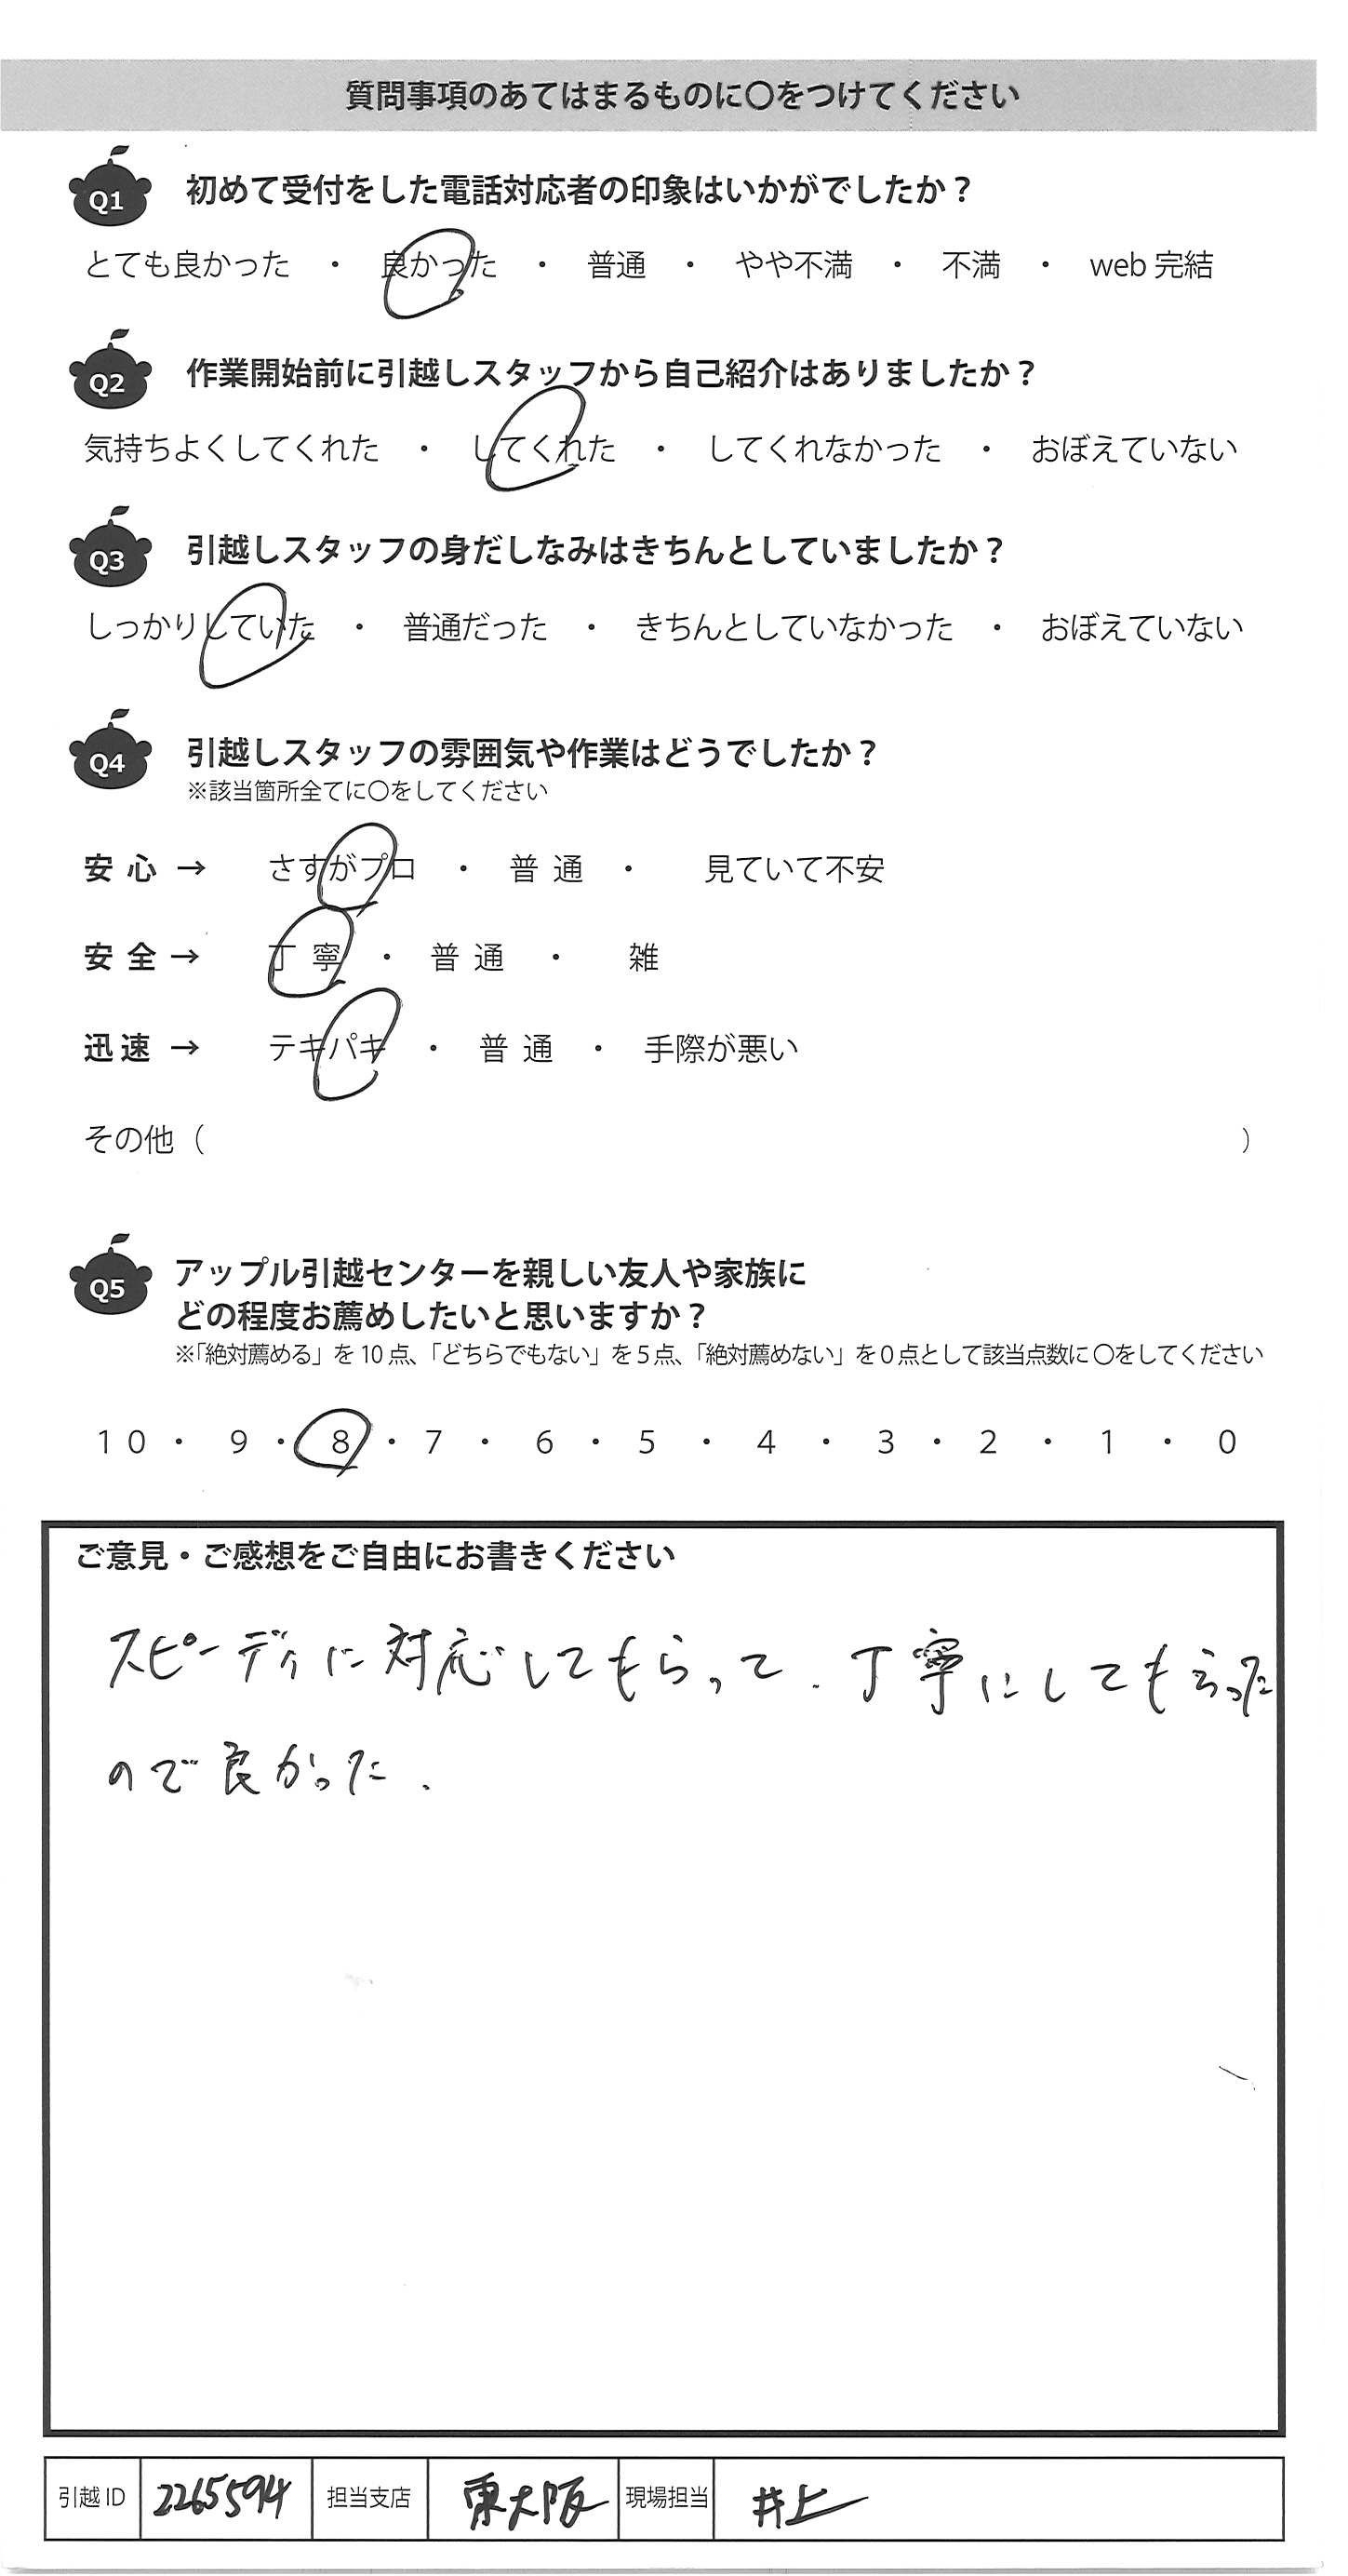 質問事項のあてはまるものに〇をつけてください
Q1 初めて受付をした電話対応者の印象はいかがでしたか？
とても良かった ・ 良かった ・ 普通 ・ やや不満 ・ 不満 ・ web 完結
Q2 作業開始前に引越しスタッフから自己紹介はありましたか？
気持ちよくしてくれた ・ してくれた ・ してくれなかった ・ おぼえていない
Q3 引越しスタッフの身だしなみはきちんとしていましたか？
しっかりしていた ・ 普通だった ・ きちんとしていなかった ・ おぼえていない
Q4 引越しスタッフの雰囲気や作業はどうでしたか？
※該当箇所全てに〇をしてください
安心 → さすがプロ ・ 普通 ・ 見ていて不安
安全 → 丁寧 ・ 普通 ・ 雑
迅速 → テキパキ ・ 普通 ・ 手際が悪い
その他（ ）
Q5 アップル引越センターを親しい友人や家族に
どの程度お薦めしたいと思いますか？
※「絶対薦める」を 10 点、「どちらでもない」を 5 点、「絶対薦めない」を 0 点として該当点数に〇をしてください
10 ・ 9 ・ 8 ・ 7 ・ 6 ・ 5 ・ 4 ・ 3 ・ 2 ・ 1 ・ 0
ご意見・ご感想をご自由にお書きください
スピーディに対応してもらって、丁寧にしてもらった
ので良かった.
引越 ID 2265594 担当支店 東大阪 現場担当 井上